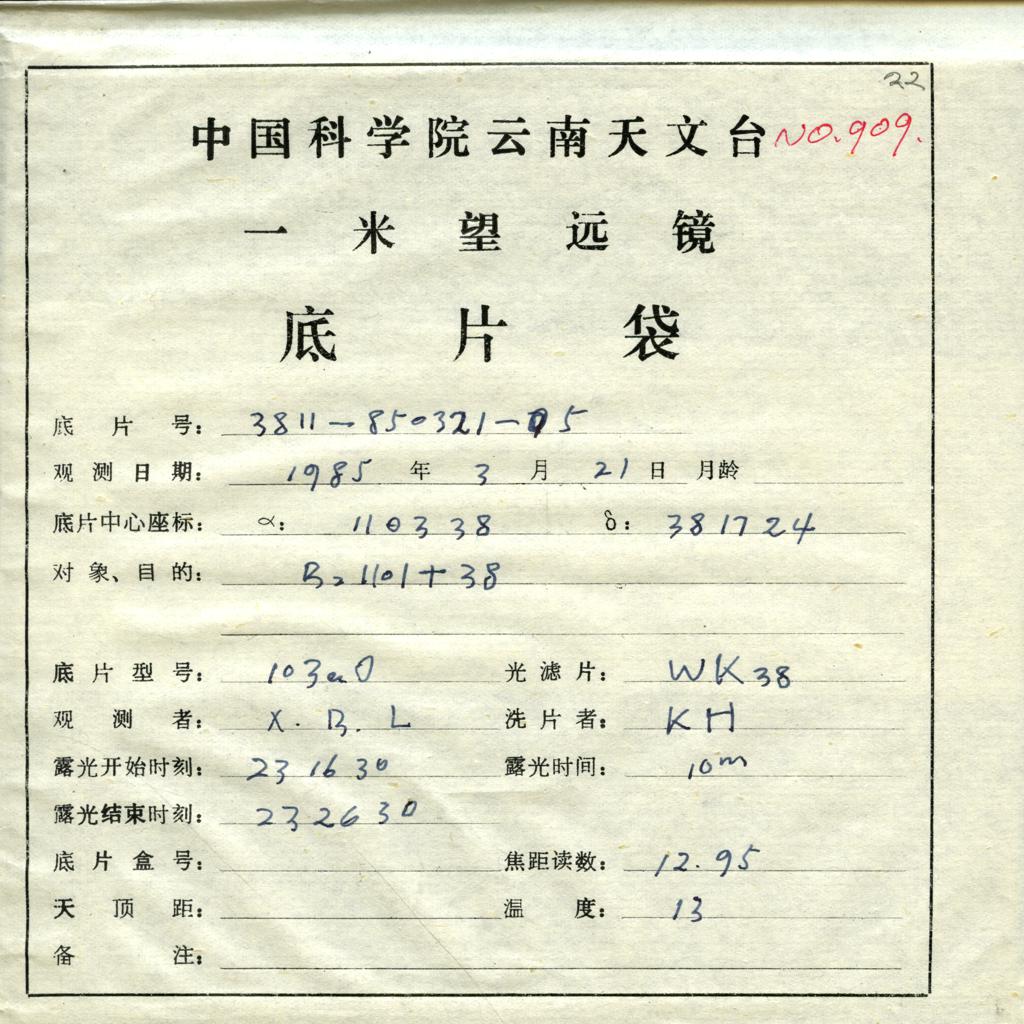 22
中国科学院云南天文台 NO.909.
一米望远镜
底片袋
底片号： 3811-850321-05
观测日期： 1985 年 3 月 21 日 月龄
底片中心座标： α： 110338 δ： 381724
对象、目的： B21101+38
底片型号： 103aO 光滤片： WK38
观测者： X.B.L 洗片者： KH
露光开始时刻： 231630 露光时间： 10m
露光结束时刻： 232630
底片盒号： 焦距读数： 12.95
天顶距： 温度： 13
备注：